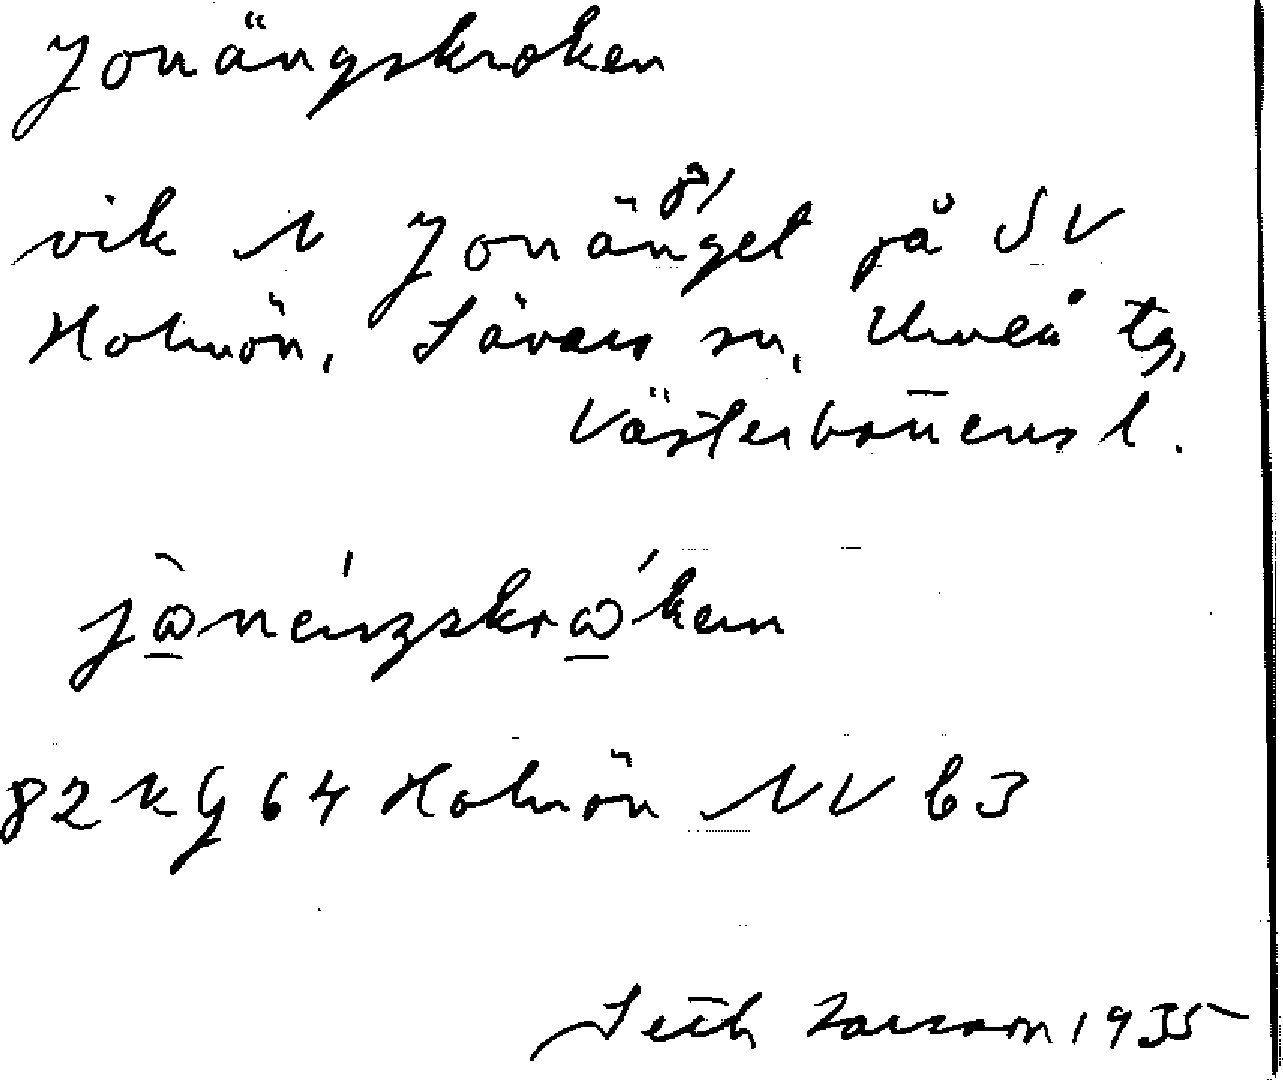 Jonängskroken
vik N Jonänget 81 på SV
Holmön, Sävars sn, Umeå tg,
Västerbottens l.
82 kg 64 Holmön NV b3
Seth Larsson 1935